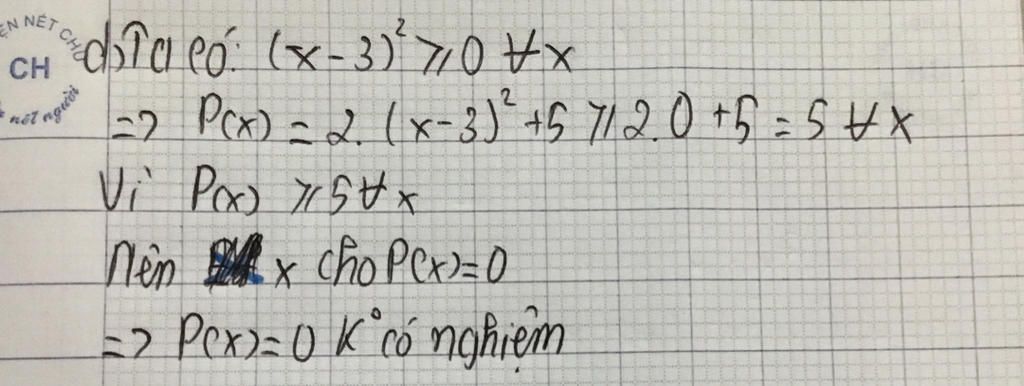 ÈN NÉT CHỮ
CH
nét người
d) Ta có: (x-3)² ≥ 0 ∀x
=> P(x) = 2. (x-3)² + 5 ≥ 2.0 + 5 = 5 ∀x
Vì P(x) ≥ 5 ∀x
Nên x cho P(x)=0
=> P(x)=0 K° có nghiệm